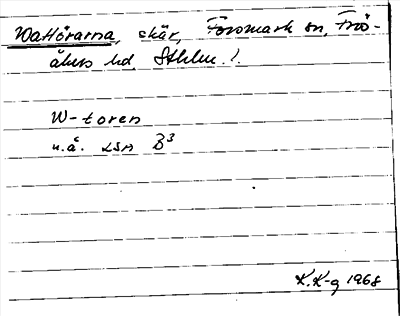 Wattörarna, skär, Forsmark sn, Frös-
åkers hd, Sthlm. l.
W-toren
u.å. LSA B³
K.K-g 1968